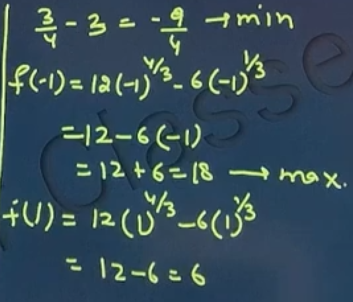 3/4 - 3 = -9/4 → min
f(-1) = 12(-1)^4/3 - 6(-1)^1/3
= 12 - 6(-1)
= 12 + 6 = 18 → max.
f(1) = 12(1)^4/3 - 6(1)^1/3
= 12 - 6 = 6